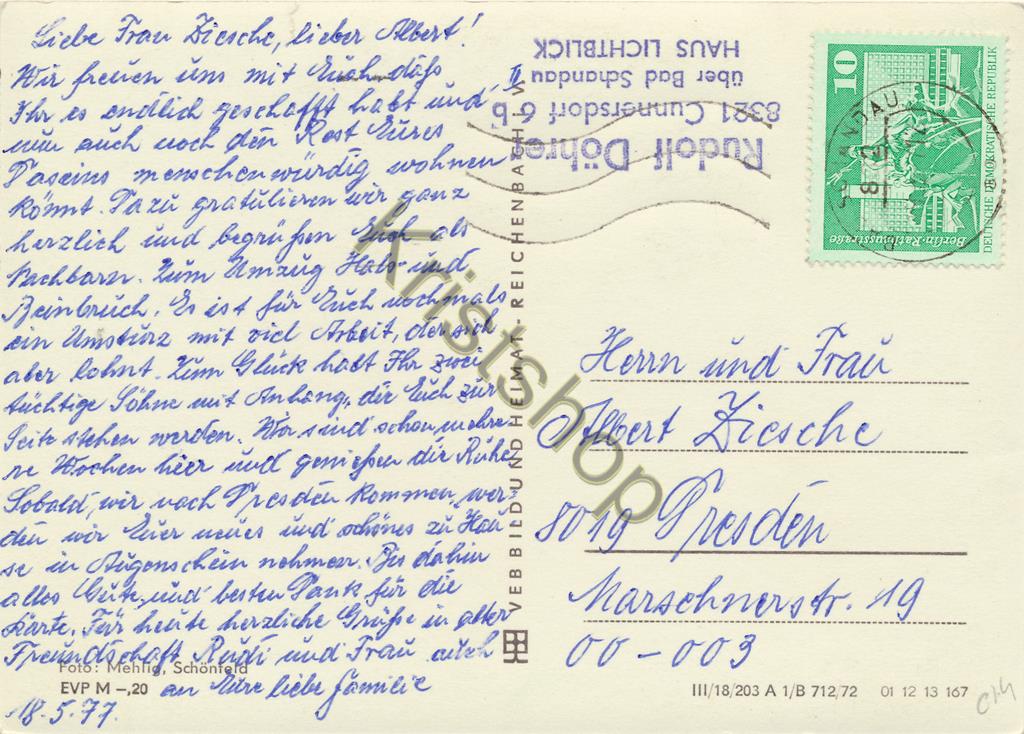 Liebe Frau Ziesche, lieber Albert!
Wir freuen uns mit Euch, daß
Ihr es endlich geschafft habt und
nun auch noch den Rest Eures
Daseins menschenwürdig wohnen
könnt. Dazu gratulieren wir ganz
herzlich und begrüßen Euch als
Nachbarn. Zum Umzug Hals- und
Beinbruch. Es ist für Euch nochmals
ein Umsturz mit viel Arbeit, der sich
aber lohnt. Zum Glück habt Ihr zwei
tüchtige Söhne mit Anhang, die Euch zur
Seite stehen werden. Wir sind schon mehre-
re Wochen hier und genießen die Ruhe
Sobald, wir nach Dresden kommen, wer-
den wir Euer neues und schönes zu Hau
se in Augenschein nehmen. Bis dahin
alles Gute, und besten Dank für die
Karte. Für heute herzliche Grüße in alter
Freundschaft Rudi und Frau auch
an Eure liebe Familie
18.5.77.
Foto: Mehlig, Schönfeld
EVP M –,20
VEB BILD UND HEIMAT · REICHENBACH i. V.
Rudolf Döhre
8321 Cunnersdorf 6 b
über Bad Schandau
HAUS LICHTBLICK
10
Berlin-Rathausstraße
DEUTSCHE DEMOKRATISCHE REPUBLIK
Herrn und Frau
Albert Ziesche
8019 Dresden
Marschnerstr. 19
00-003
III/18/203 A 1/B 712/72 01 12 13 167
Kristshop